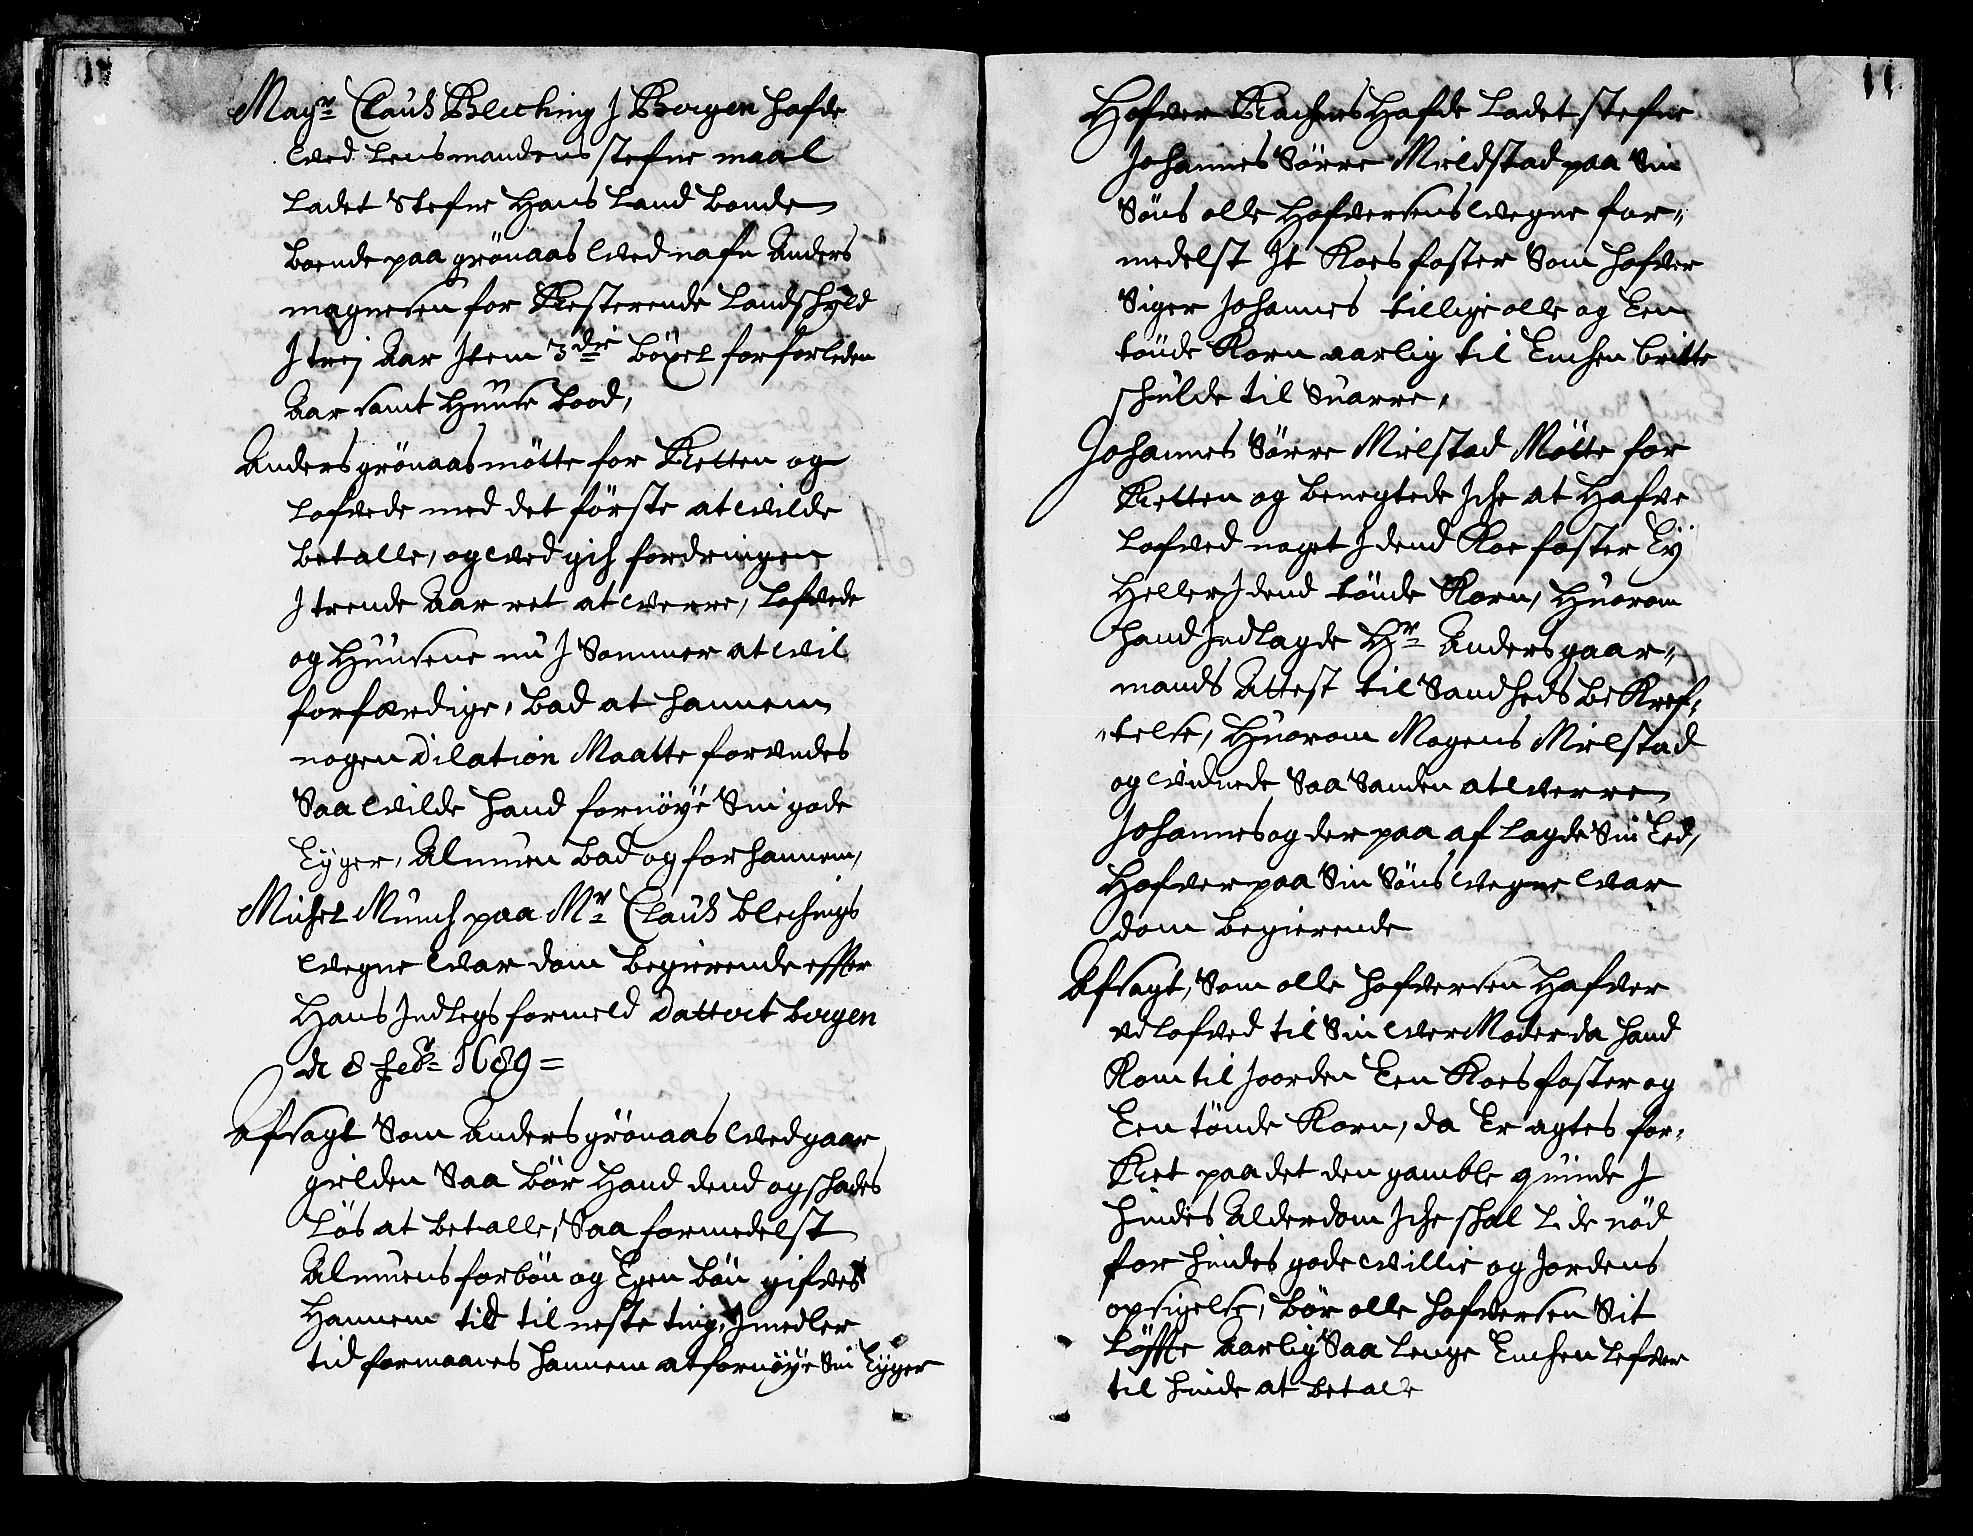 Mag:r Claus Bleching J Bergen hafde
ved Lensmandens stefne maal
Ladet Stefne Hans Land Bonde
boende paa grönaas ved nafn Anders
magnesen for Resterende Landschyld
J trej Aar Jtem 3die böxel for forleden
Aar samt Huuse Bod,
Anders grönaas mötte for Retten og
Lofvede med det förste at wilde
betalle, og wed gich fordringen
J trende Aar ret at werre, Lofvede
og Huusene nu J Sommer at wil
forfærdige, bad at hannem
nogen Dilation Maatte forundes
Saa wilde hand fornöye Sin gode
Eyger, Almuen bad og for hannem,
Michel Münch paa Mr Claus blechings
wegne war dom begierende effter
Hans Jndlegs formeld Datterit bergen
de 8 febr: 1689 =
Afsagt Som Anders grönaas wedgaar
gielden Saa bör Hand dend og schades
Lös at betalle, Saa formedelst
Almuens forbön og Egen bön gifves
Hannem tid til neste ting, Jmedler
tid formaanes hannem at fornöye Sin Eyger
11
Hofver Hafde Ladet stefne
Johannes Sörre Mielstad paa Sin
Söns olle Hofversens wegne for-
medelst Jt Koes foster Som hofver
Siger Johannes tillige olle og Een
tönde Korn aarlig til Enchen britte
schulde til Suarre,
Johannes Sörre Mielstad Mötte for
Retten og benegtede Jche at Hafve
Lofved noget J dend Koe foster Ey
Heller J dend tönde Korn, Huorom
hand Jndlagde Hr Anders gaar-
mands Attest til Sandheds be Kref-
telse, Huorom Mogens Mielstad
og widnede Saa Sanden at werre
Johannes og der paa af lagde Sin Eed,
Hofver paa Sin Söns wegne war
dom begierende
Afsagt, Som olle hofversen Hafver
ud lofved til Sin wer Moder da hand
Kom til Jorden Een Koes foster og
Een tönde Korn, da Er agtes for-
Ret paa det den gamble quinde J
hindes Alderdom Jche schal Lide nöd
for hindes gode willie og Jordens
opsigelse, bör olle hofversen Sit
Löffte Aarlig Saa lenge Enchen Lefver
til hinde at betale